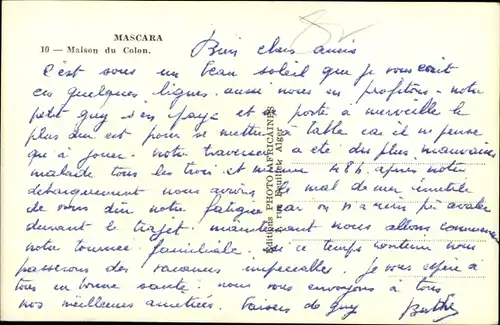 MASCARA
10 — Maison du Colon.
Bien chers amis
C'est sous un beau soleil que je vous écrit
ces quelques lignes. aussi nous en profitons. notre
petit guy s'en paye et se porte a merveille le
plus dur est pour se mettre à table car il ne pense
qu'à jouer. notre traversée a été des plus mauvaises
malade tous les trois et même 48h. après notre
débarquement nous avions le mal de mer inutile
de vous dire notre fatigue car on n'a rien pu avaler
durant le trajet. maintenant nous allons commencer
notre tournée familiale. si ce temps continu nous
passerons des vacances impeccables. je vous espère à
tous en bonne santé. nous vous envoyons à tous
nos meilleures amitiées. Baisers de guy
Berthe
Editions PHOTO-AFRICAINES
rue Feuillet, Alger